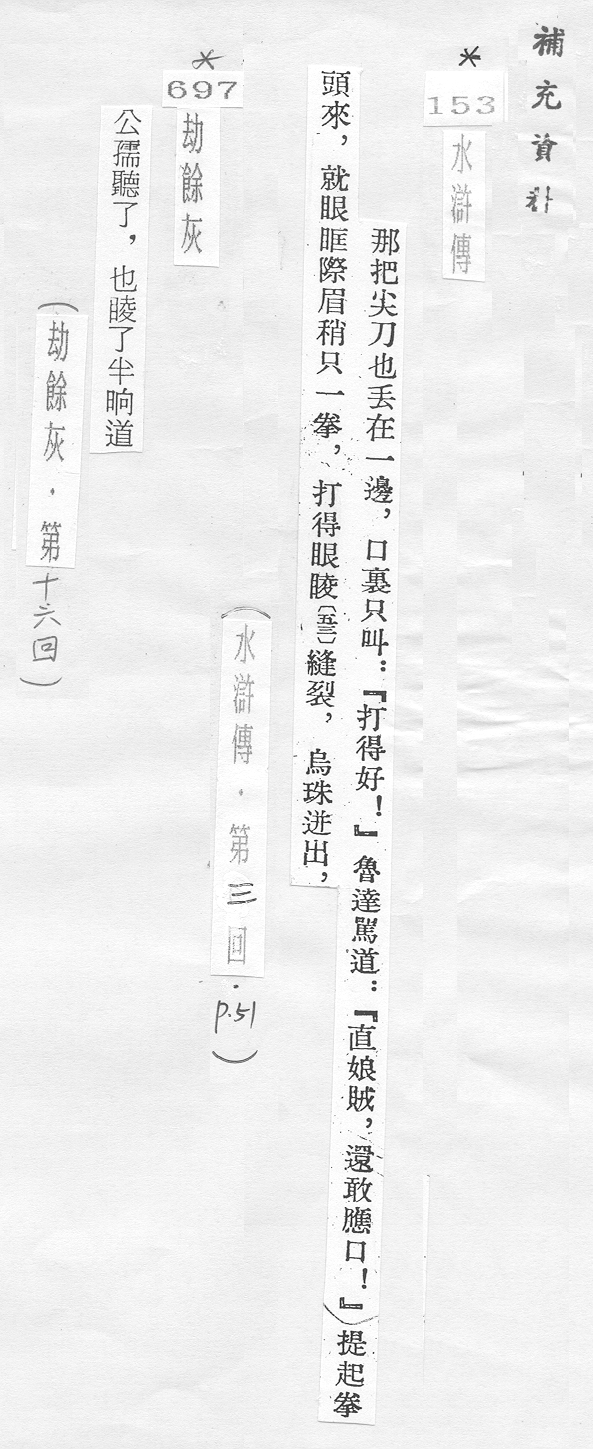 補充資料
*
153
水滸傳
那把尖刀也丢在一邊，口裏只叫：『打得好！』魯達駡道：『直娘賊，還敢應口！』提起拳
頭來，就眼眶際眉稍只一拳，打得眼睖〔五三〕縫裂，烏珠迸出，
（水滸傳．第三回．p.51）
*
697
劫餘灰
公孺聽了，也睖了半晌道
（劫餘灰．第十六回）